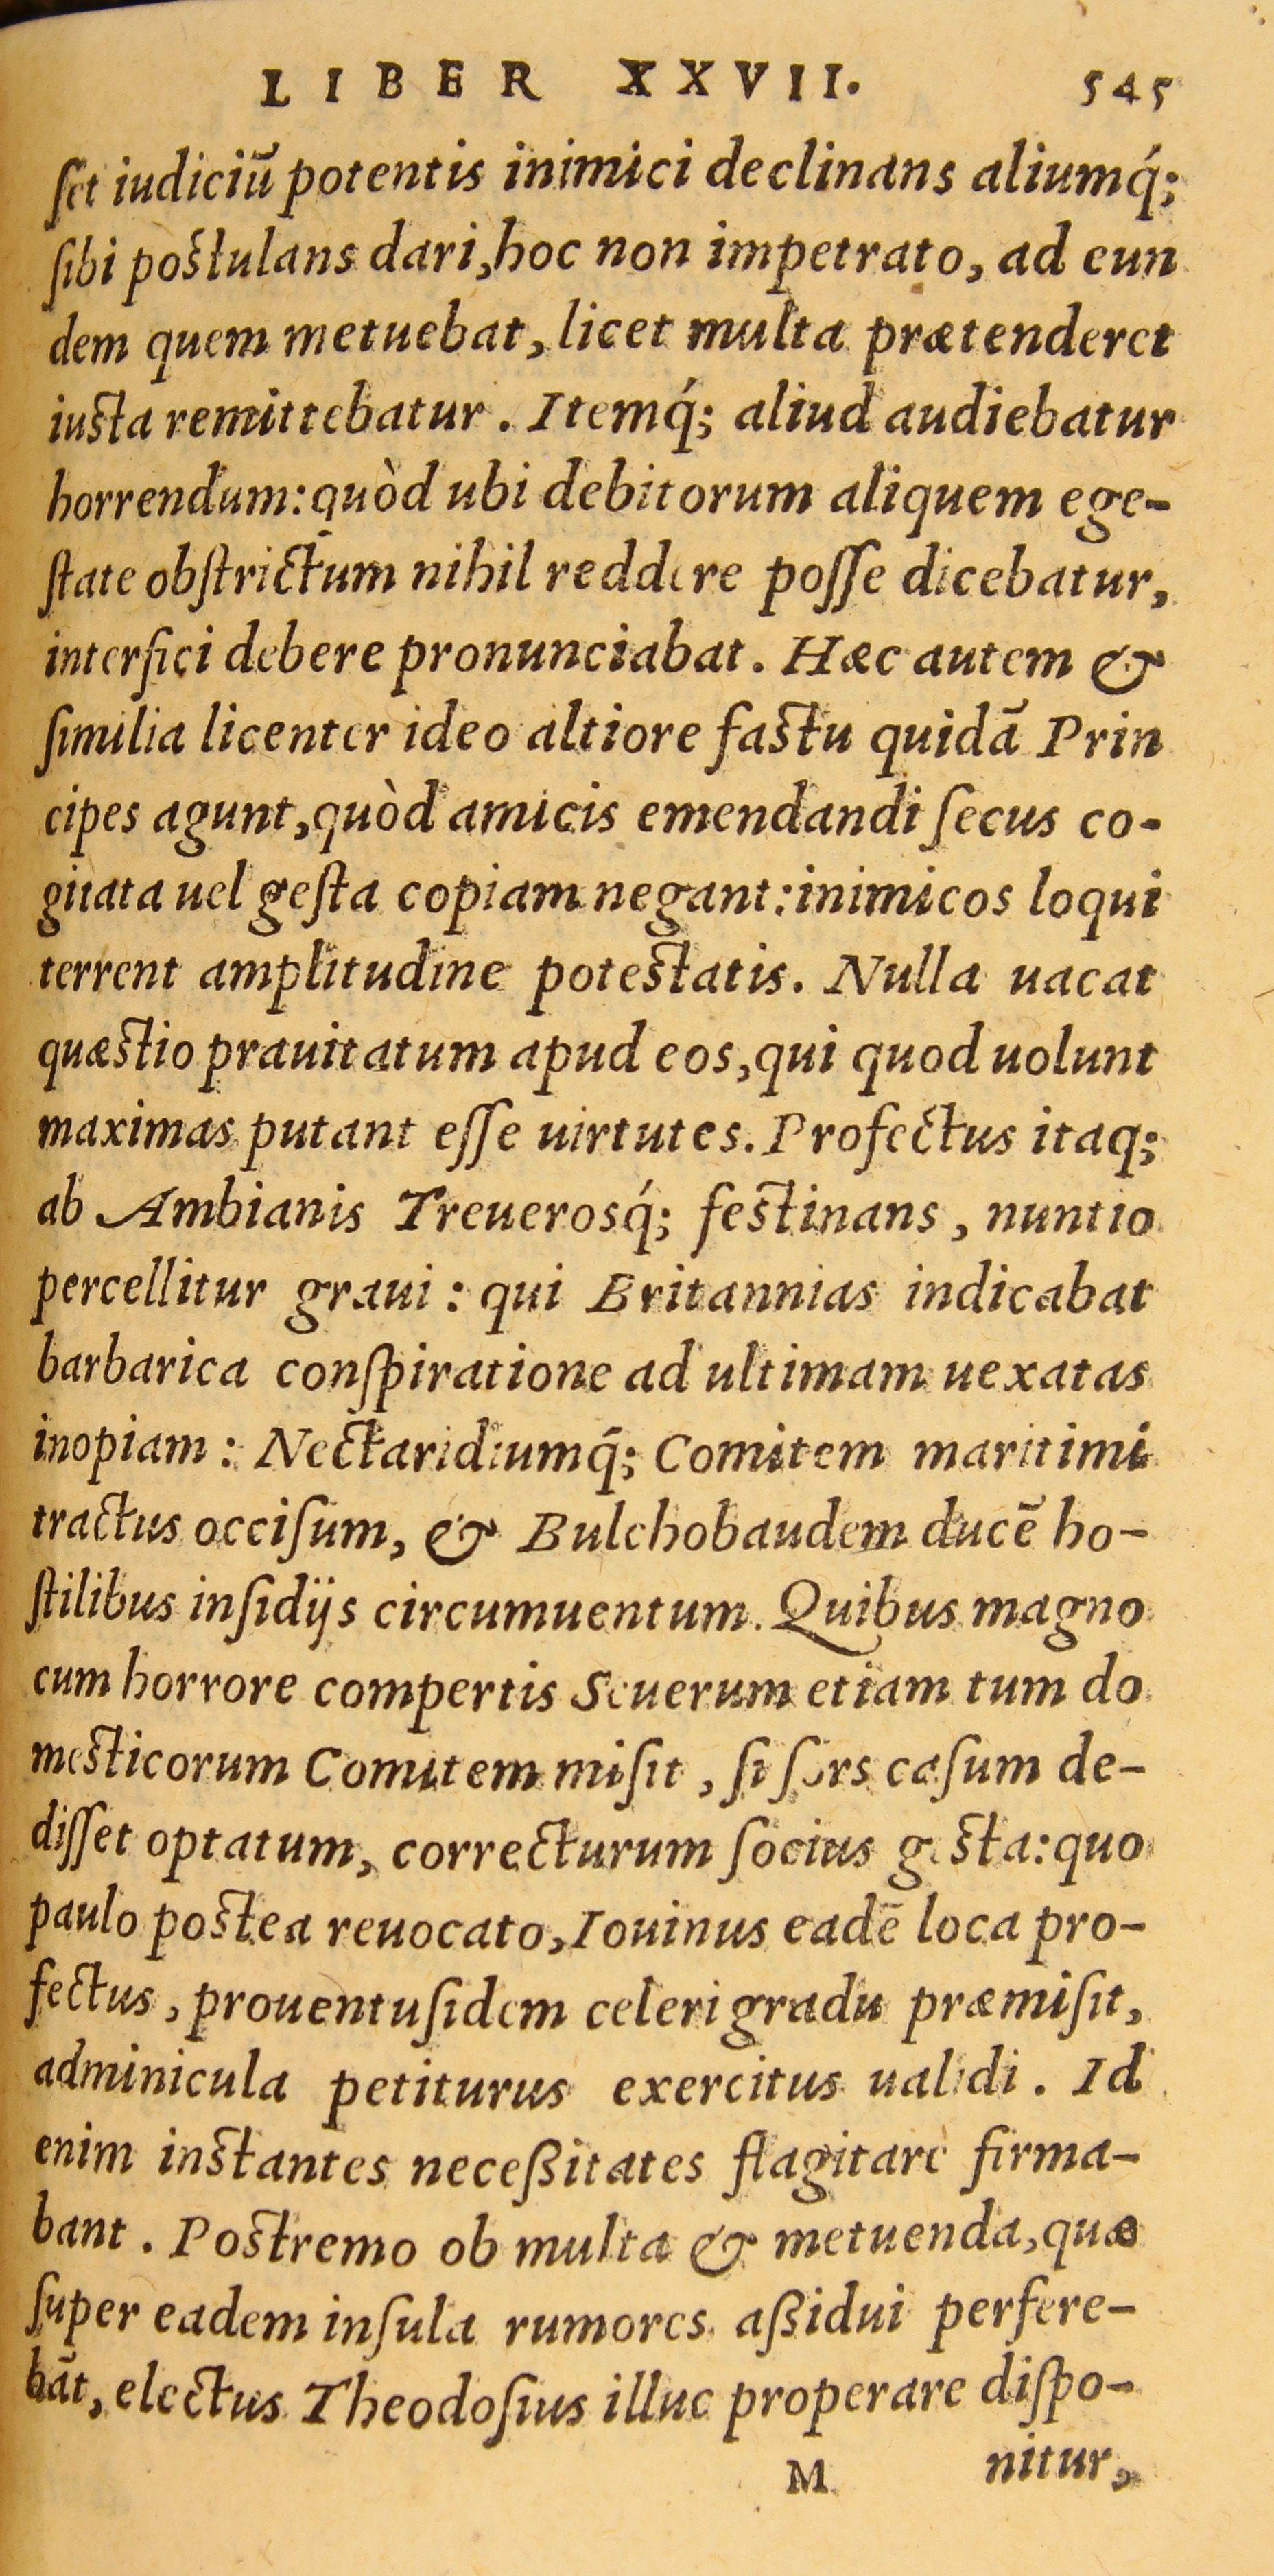 LIBER XXVII. 545
ſet iudiciū potentis inimici declinans aliumq́;
ſibi poſtulans dari, hoc non impetrato, ad eun
dem quem metuebat, licet multa prætenderet
iuſta remittebatur. Itemq́; aliud audiebatur
horrendum: quòd ubi debitorum aliquem ege-
ſtate obſtrictum nihil reddere poſſe dicebatur,
interfici debere pronunciabat. Hæc autem &
ſimilia licenter ideo altiore faſtu quidā Prin
cipes agunt, quòd amicis emendandi ſecus co-
gitata uel geſta copiam negant: inimicos loqui
terrent amplitudine poteſtatis. Nulla uacat
quæſtio prauitatum apud eos, qui quod uolunt
maximas putant eſſe uirtutes. Profectus itaq;
ab Ambianis Treuerosq́; feſtinans, nuntio
percellitur graui: qui Britannias indicabat
barbarica conſpiratione ad ultimam uexatas
inopiam: Nectaridiumq́; Comitem maritimi
tractus occiſum, & Bulchobaudem ducē ho-
ſtilibus inſidijs circumuentum. Quibus magno
cum horrore compertis Seuerum etiam tum do
meſticorum Comitem miſit, ſi ſors caſum de-
diſſet optatum, correcturum ſocius geſta: quo
paulo poſtea reuocato, Iouinus eadē loca pro-
fectus, prouentuſidem celeri gradu præmiſit,
adminicula petiturus exercitus ualidi. Id
enim inſtantes neceßitates flagitare firma-
bant. Poſtremo ob multa & metuenda, quæ
ſuper eadem inſula rumores aßidui perfere-
bāt, electus Theodoſius illuc properare diſpo-
M nitur,